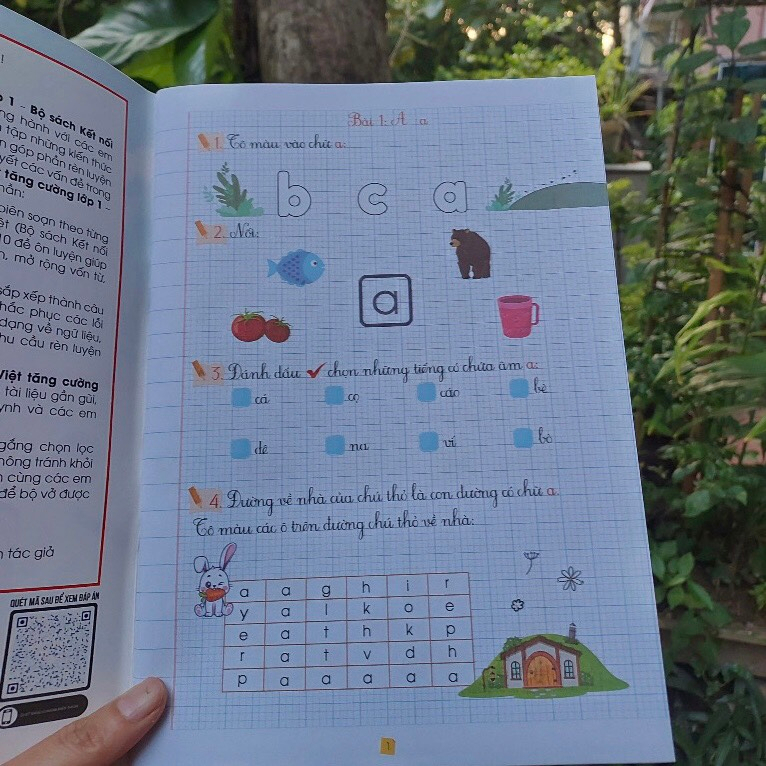 1 - Bộ sách Kết nối
ng hành với các em
tập những kiến thức
n góp phần rèn luyện
yết các vấn đề trong
tăng cường lớp 1 -
hần:
biên soạn theo từng
ệt (Bộ sách Kết nối
10 đề ôn luyện giúp
n, mở rộng vốn từ,
sắp xếp thành câu
hắc phục các lỗi
dạng về ngữ liệu,
hu cầu rèn luyện
Việt tăng cường
tài liệu gần gũi,
ynh và các em
gắng chọn lọc
hông tránh khỏi
cùng các em
để bộ vở được
tác giả
QUÉT MÃ SAU ĐỂ XEM ĐÁP ÁN
Bài 1: A a
1. Tô màu vào chữ a:
b c a
2. Nối:
a
3. Đánh dấu chọn những tiếng có chứa âm a:
cá cọ cáo bè
dê na ví bò
4. Đường về nhà của chú thỏ là con đường có chữ a.
Tô màu các ô trên đường chú thỏ về nhà:
a a g h i r
y a l k o e
e a t h k p
r a t v d h
p a a a a a
1